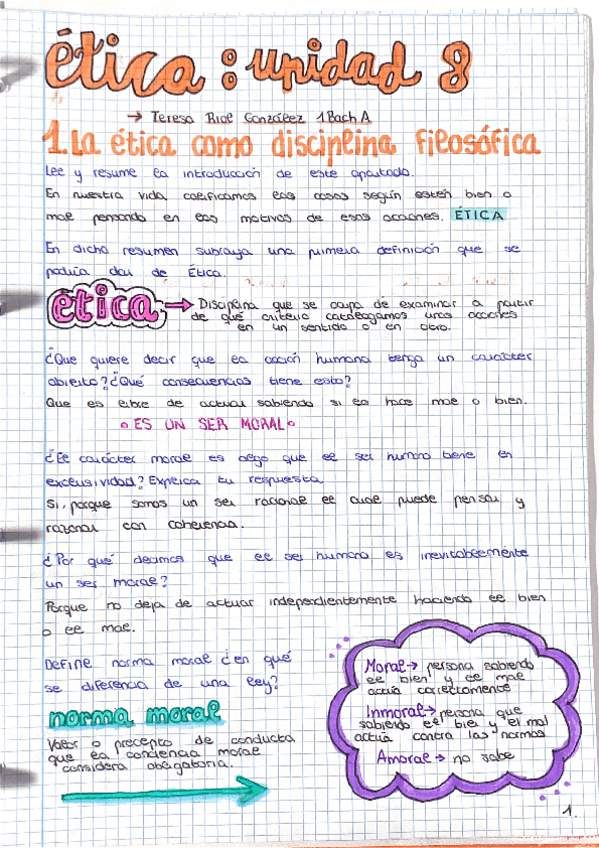 ética: unidad 8
→ Teresa Rioe González 1Bach A
1. La ética como disciplina filosófica
Lee y resume la introducción de este apartado.
En nuestra vida calificamos las cosas según estén bien o
mal pensando en los motivos de esas acciones. ÉTICA
En dicho resumen subraya una primera definición que se
podría dar de Ética.
ética → Disciplina que se ocupa de examinar a partir
de qué criterio catalogamos unas acciones
en un sentido o en otro.
¿Que quiere decir que la acción humana tenga un carácter
abierto? ¿Qué consecuencias tiene esto?
Que es libre de actuar sabiendo si lo hace mal o bien.
• ES UN SER MORAL •
¿El carácter moral es algo que el ser humano tiene en
exclusividad? Explica tu respuesta
Si, porque somos un ser racional el cual puede pensar y
razonar con coherencia.
¿Por qué decimos que el ser humano es inevitablemente
un ser moral?
Porque no deja de actuar independientemente haciendo el bien
o el mal.
Define norma moral ¿en qué
se diferencia de una ley?
norma moral
Valor o precepto de conducta
que la conciencia moral
considera obligatoria.
Moral → persona sabiendo
el bien y el mal
actúa correctamente
Inmoral → persona que
sabiendo el bie y el mal
actúa contra las normas
Amoral → no sabe
1.